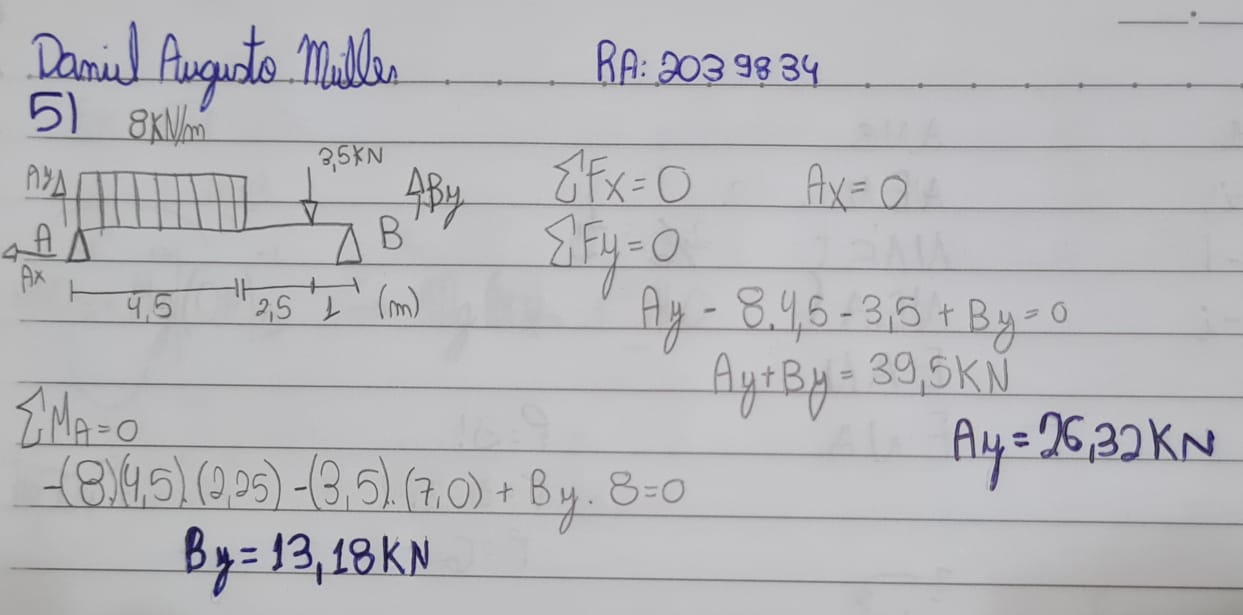 Daniel Augusto Müller RA: 2039834
5) 8KN/m
3,5KN
Ay By
A B
Ax
4,5 2,5 1 (m)
∑Fx=0 Ax=0
∑Fy=0
Ay - 8.4,5 - 3,5 + By = 0
Ay+By = 39,5KN
Ay = 26,32KN
∑MA=0
-(8)(4,5).(2,25) - (3,5).(7,0) + By. 8=0
By = 13,18KN